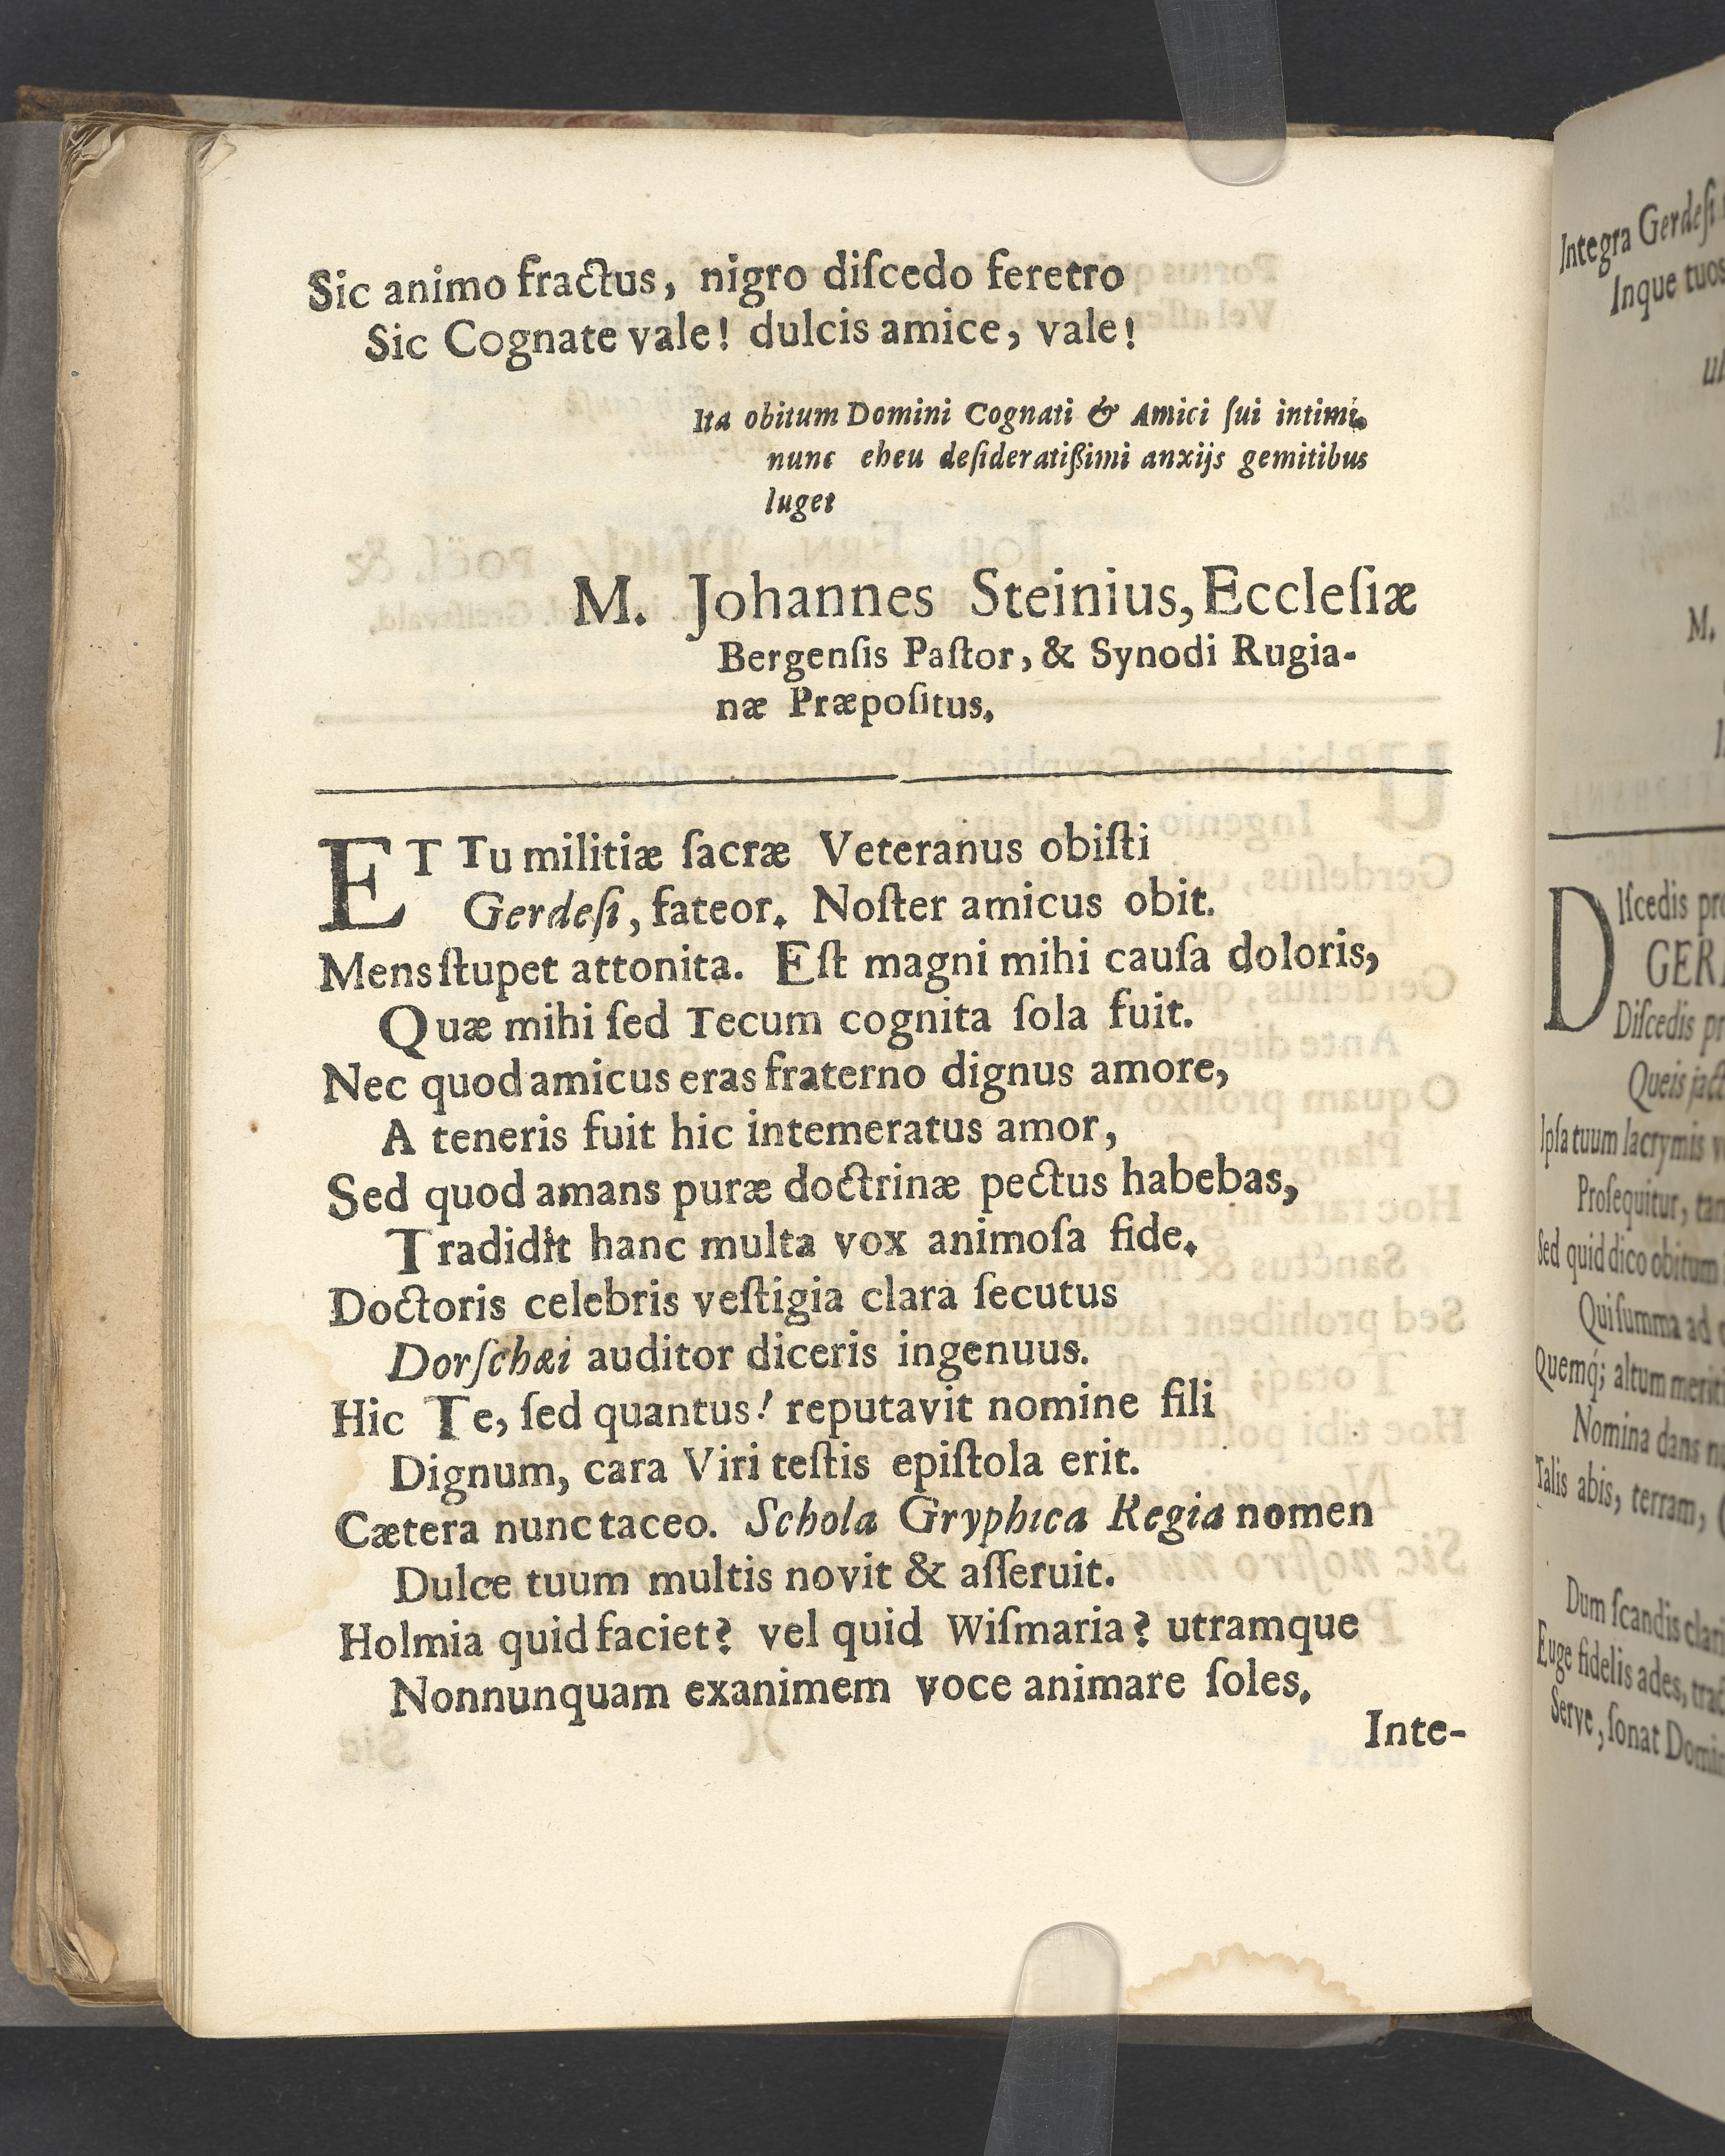 Sic animo fractus, nigro diſcedo feretro
Sic Cognate vale! dulcis amice, vale!
Ita obitum Domini Cognati & Amici ſui intimi,
nunc eheu deſideratißimi anxijs gemitibus
luget
M. Johannes Steinius, Eccleſiæ
Bergenſis Paſtor, & Synodi Rugia-
næ Præpoſitus.
ET Tu militiæ ſacræ Veteranus obiſti
Gerdeſi, fateor. Noſter amicus obit.
Mens ſtupet attonita. Eſt magni mihi cauſa doloris,
Quæ mihi ſed Tecum cognita ſola fuit.
Nec quod amicus eras fraterno dignus amore,
A teneris fuit hic intemeratus amor,
Sed quod amans puræ doctrinæ pectus habebas,
Tradidit hanc multa vox animoſa fide.
Doctoris celebris veſtigia clara ſecutus
Dorſchæi auditor diceris ingenuus.
Hic Te, ſed quantus! reputavit nomine fili
Dignum, cara Viri teſtis epiſtola erit.
Cætera nunc taceo. Schola Gryphica Regia nomen
Dulce tuum multis novit & aſſeruit.
Holmia quid faciet? vel quid Wiſmaria? utramque
Nonnunquam exanimem voce animare ſoles.
Inte-
Integra Gerdeſi
Inque tuos
M.
Diſcedis
GER
Diſcedis
Queis
Ipſa tuum lacrymis
Proſequitur,
Sed quid dico obitum
Qui ſumma ad
Quemq́; altum
Nomina dans
Talis abis, terram,
Dum ſcandis
Euge fidelis ades,
Serve, ſonat